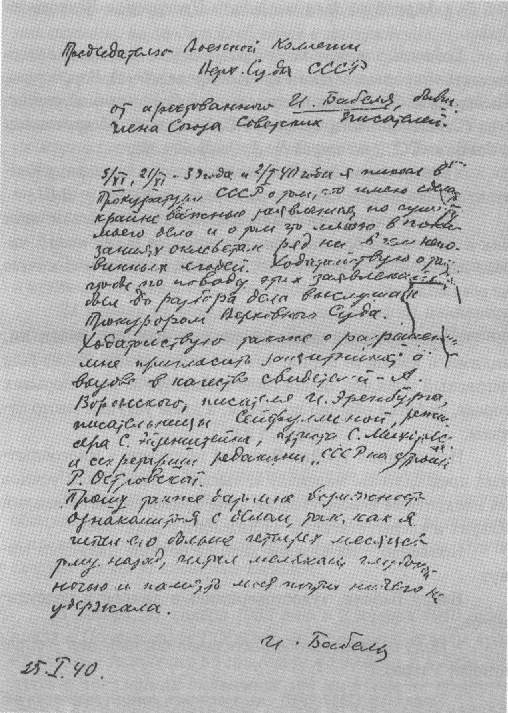 Председателю Военной Коллегии
Верх. Суда СССР
от арестованного И. Бабеля, бывш.
члена Союза Советских Писателей.
5/XI, 21/XI - 39 года и 2/I 40 года я писал в
Прокуратуру СССР о том, что имею сделать
крайне важные заявления по существу
моего дела и о том что мною в пока
заниях оклеветан ряд ни в чем непо-
винных людей. Ходатайствую о том,
чтобы по поводу этих заявлений я
был до разбора дела выслушан
Прокурором Верховного Суда.
Ходатайствую также о разрешении
мне пригласить защитника, о
вызове в качестве свидетелей - А.
Воронского, писателя И. Эренбурга,
писательницы Сейфуллиной, режис
сера С. Эйзенштейна, артиста С. Михоэлса
и секретаря редакции „СССР на стройке
Р. Островской.
Прошу также дать мне возможность
ознакомиться с делом, так как я
читал его больше четырех месяцев
тому назад, читал мельком, глубокой
ночью и память моя почти ничего не
удержала.
И. Бабель
25.I.40.